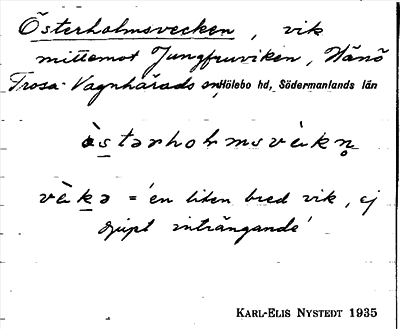 Österholmsvecken, vik
mittemot Jungfruviken, Hånö
Trosa-Vagnhärads sn, Hölebo hd, Södermanlands län
östərholmsvèkn̥
vèkə = 'en liten bred vik, ej
djupt inträngande'
KARL-ELIS NYSTEDT 1935